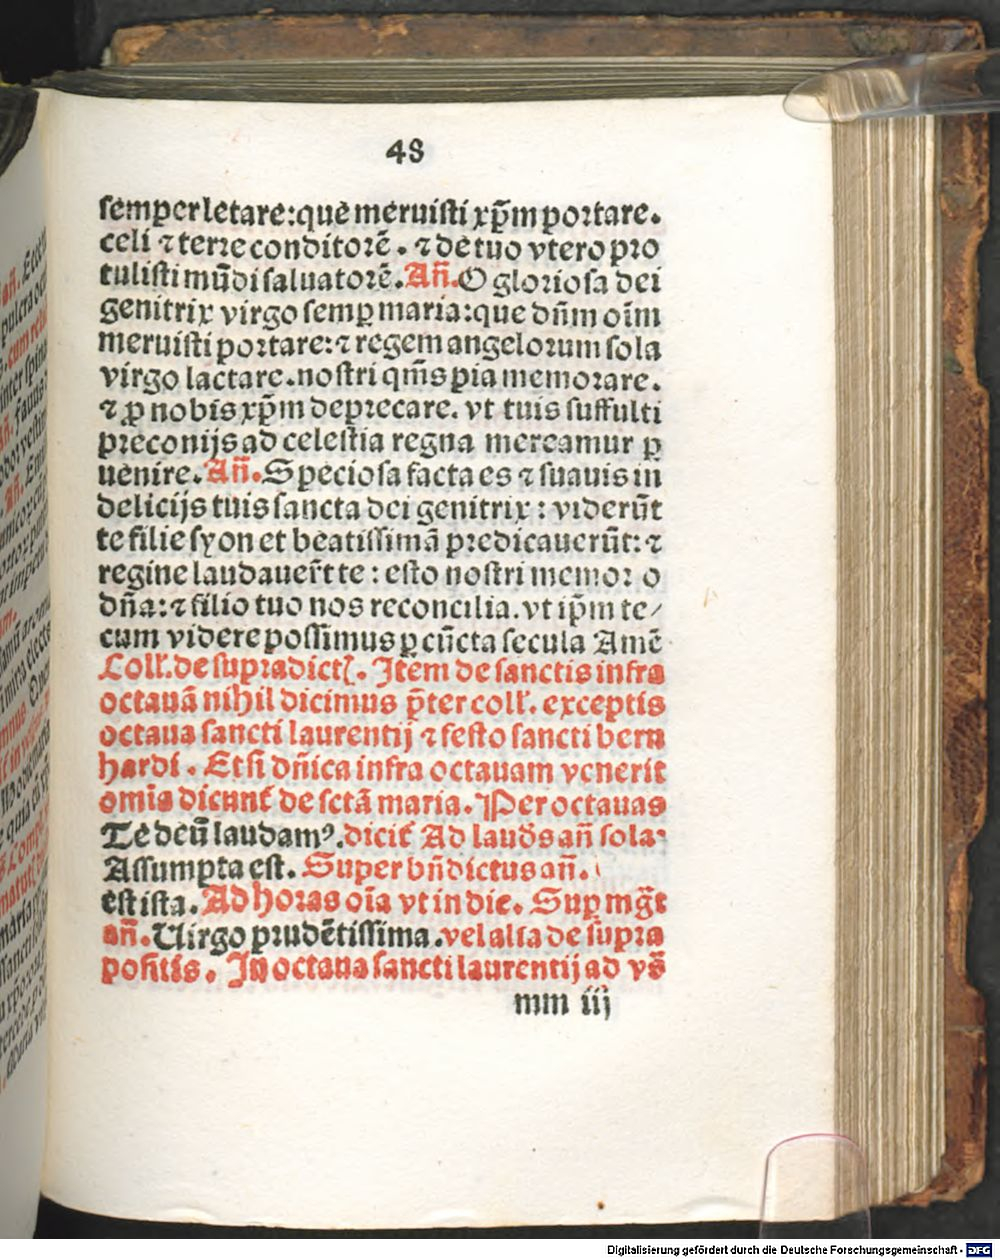 48
semper letare: que meruisti xp̄m portare.
celi ⁊ terre conditorē. ⁊ de tuo vtero pro
tulisti mūdi saluatorē. Añ. O gloriosa dei
genitrix virgo semꝑ maria: que dñm oīm
meruisti portare: ⁊ regem angelorum sola
virgo lactare. nostri qm̄s pia memorare.
⁊ ꝓ nobis xp̄m deprecare. vt tuis suffulti
preconijs ad celestia regna mereamur ꝑ
uenire. Añ. Speciosa facta es ⁊ suauis in
delicijs tuis sancta dei genitrix: viderūt
te filie syon et beatissimā predicauerūt: ⁊
regine laudauer̄t te: esto nostri memor o
dña: ⁊ filio tuo nos reconcilia. vt ip̄m te/
cum videre possimus ꝑ cūcta secula Amē
Coll̄. de supradictꝭ. Item de sanctis infra
octauā nihil dicimus p̄ter coll̄. exceptis
octaua sancti laurentij ⁊ festo sancti bern
hardi. Et si dñica infra octauam venerit
omīs dicunt̄ de sctā maria. Per octauas
Te deū laudamꝰ. dicit̄ Ad lauds añ sola:
Assumpta est. Super bñdictus añ.
est ista. Ad horas oīa vt in die. Suꝑ mḡt
añ. Uirgo prudētissima. vel alia de supra
positis. In octaua sancti laurentij ad vs̄
mm iij
Digitalisierung gefördert durch die Deutsche Forschungsgemeinschaft - DFG